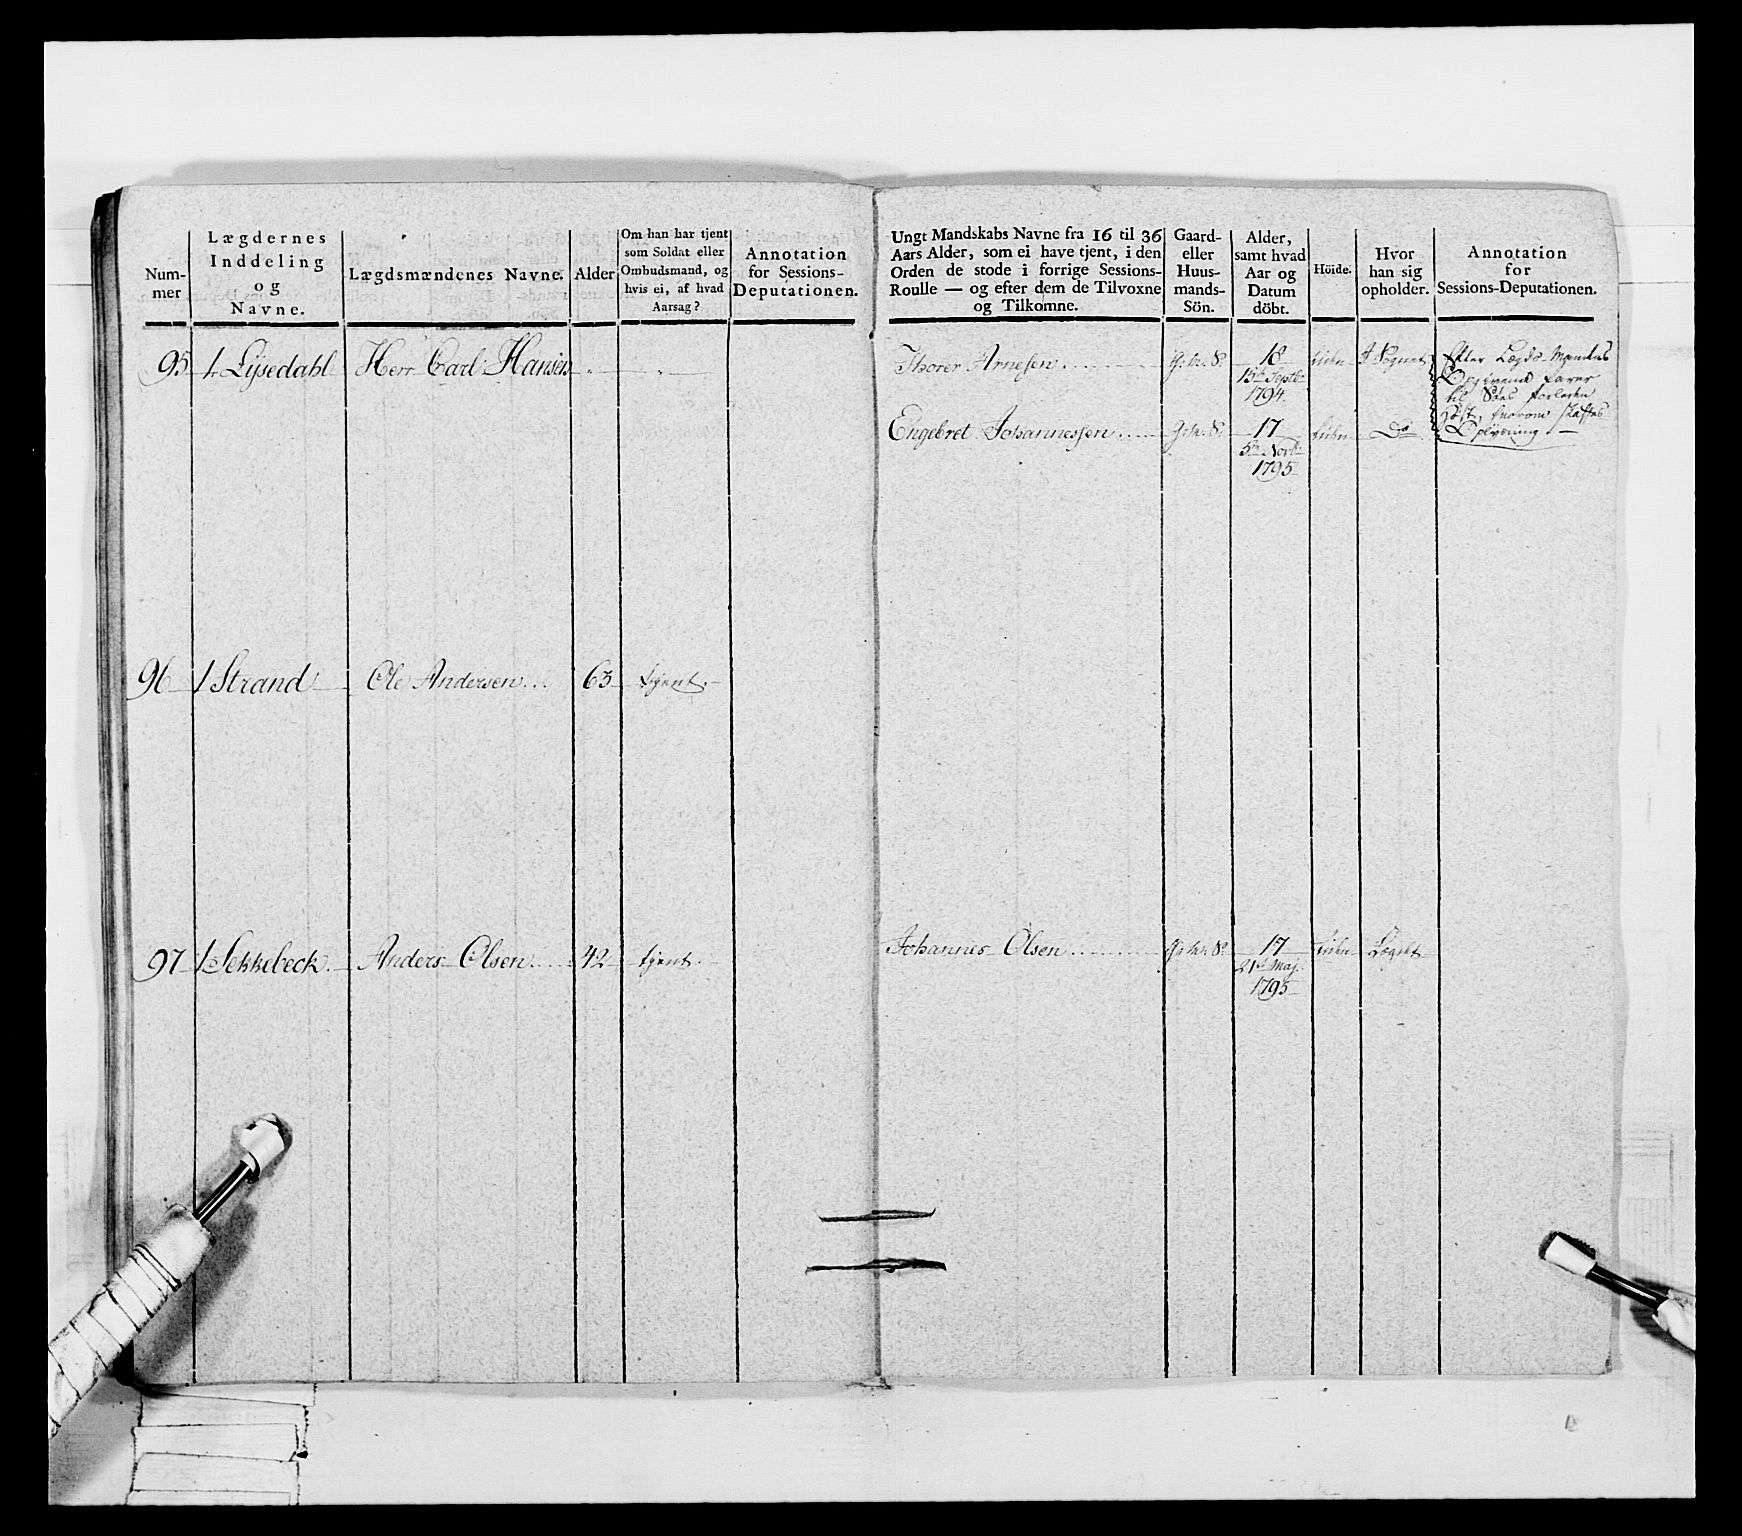 Num-
mer
Lægdernes
Inddeling
og
Navne.
Lægdsmændenes Navne.
Alder
Om han har tjent
som Soldat eller
Ombudsmand, og
hvis ei, af hvad
Aarsag?
Annotation
for Sessions-
Deputationen.
Ungt Mandskabs Navne fra 16 til 36
Aars Alder, som ei have tjent, i den
Orden de stode i forrige Sessions-
Roulle — og efter dem de Tilvoxne
og Tilkomne.
Gaard-
eller
Huus-
mands-
Sön.
Alder,
samt hvad
Aar og
Datum
döbt.
Höide.
Hvor
han sig
opholder.
Annotation
for
Sessions-Deputationen.
95 Lysedahl Herr Carl Hansen
Thorer Arnesen 18 liden I Sognet
15de Septbr
1794.
Efter Lægds-Mandens
Opgivende farer
til Søes forleden
Høst, hvorom skaffes
Oplysning. —
Engebret Johannessen 17 liden Do
5te Novbr
1795
96 1 Strand Ole Andersen 63 tjent.
97 1 Sekkebeck. Anders Olsen 42 tjent.
Johannes Olsen 17 liden Lægdet
21de Maj.
1795